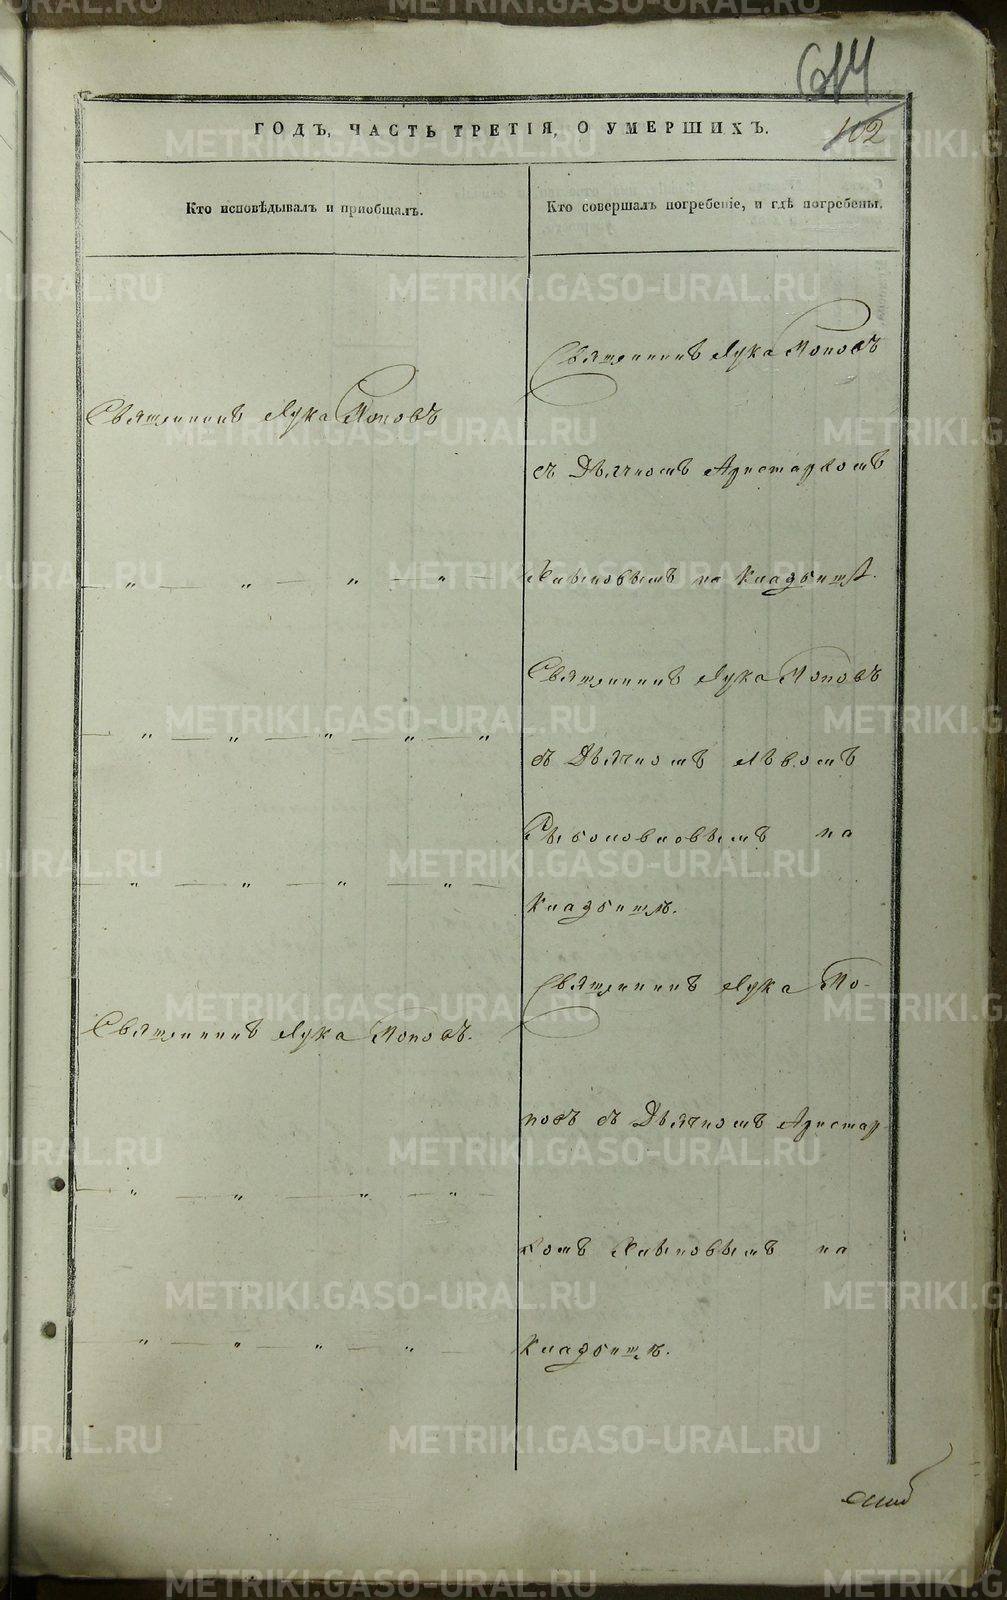 614
102
ГОДЪ, ЧАСТЬ ТРЕТІЯ, О УМЕРШИХЪ.
Кто исповѣдывалъ и пріобщалъ.
Кто совершалъ погребеніе, и гдѣ погребены.
Священникъ Лука Поповъ
Священникъ Лука Поповъ
съ Дьячкомъ Аристархомъ
на Кладбищѣ.
" " " "
Священникъ Лука Поповъ
съ Дьячкомъ Львомъ
" " " " "
на
Кладбищѣ.
" " " "
Священникъ Лука По-
Священникъ Лука Поповъ.
повъ съ Дьячкомъ Аристар
" " " "
хомъ на
Кладбищѣ.
" " " "
METRIKI.GASO-URAL.RU